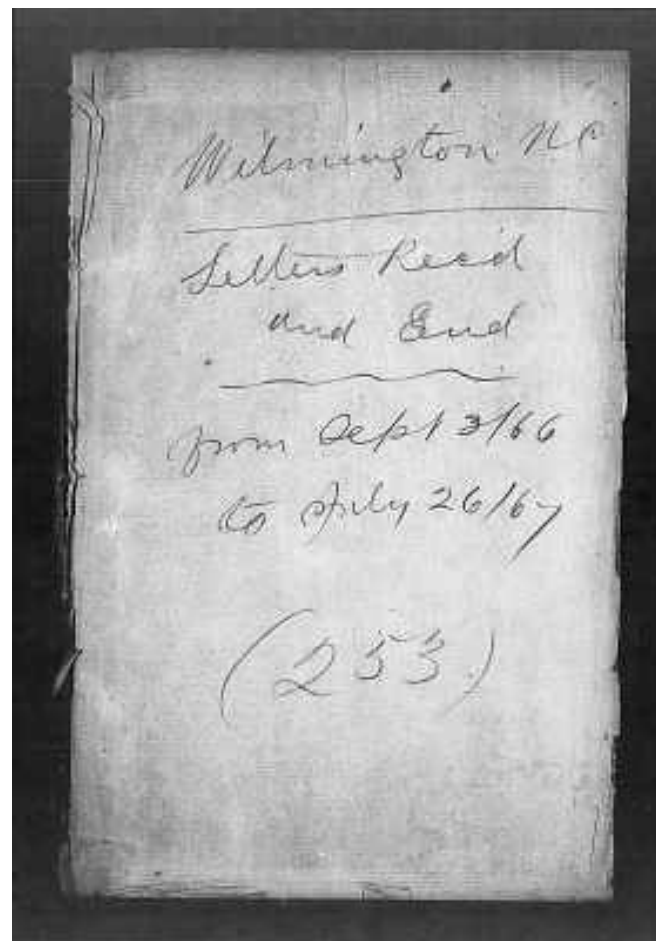 Wilmington N C
Letters Rec'd
and End
from Sept 3/66
to July 26/67
(253)